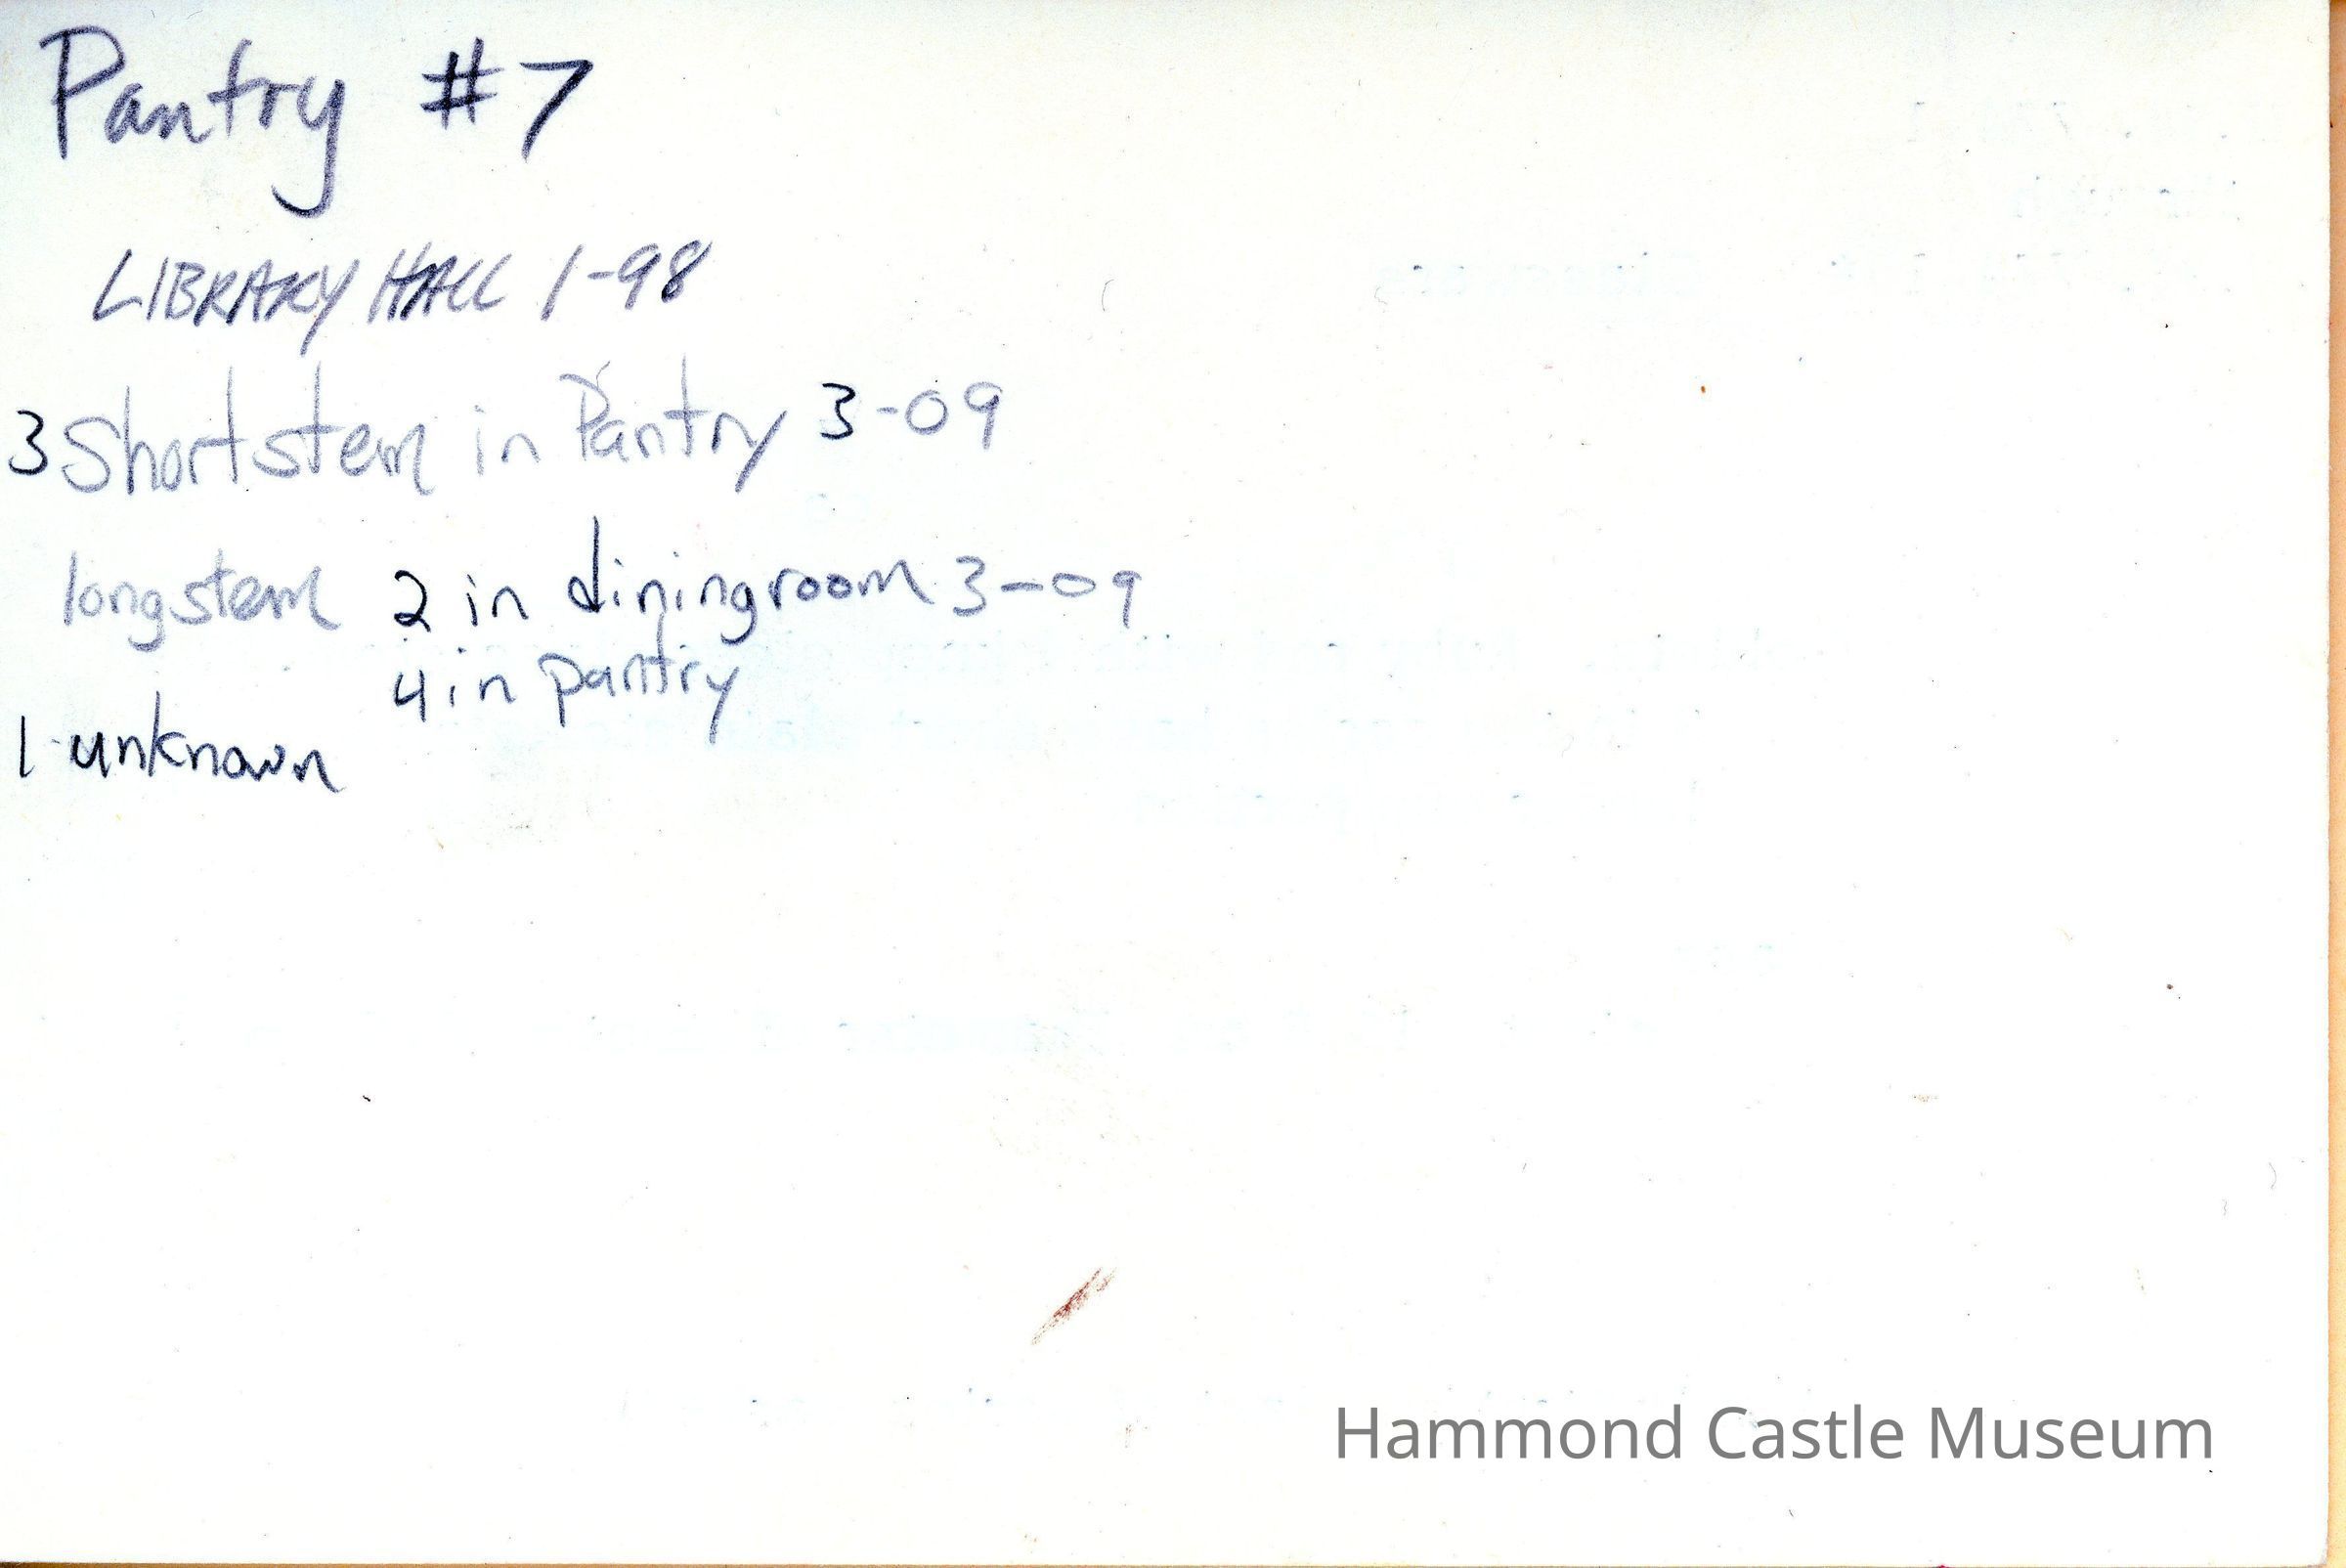 Pantry #7
LIBRARY HALL 1-98
3 Short stem in Pantry 3-09
long stem 2 in diningroom 3-09
4 in pantry
1-unknown
Hammond Castle Museum